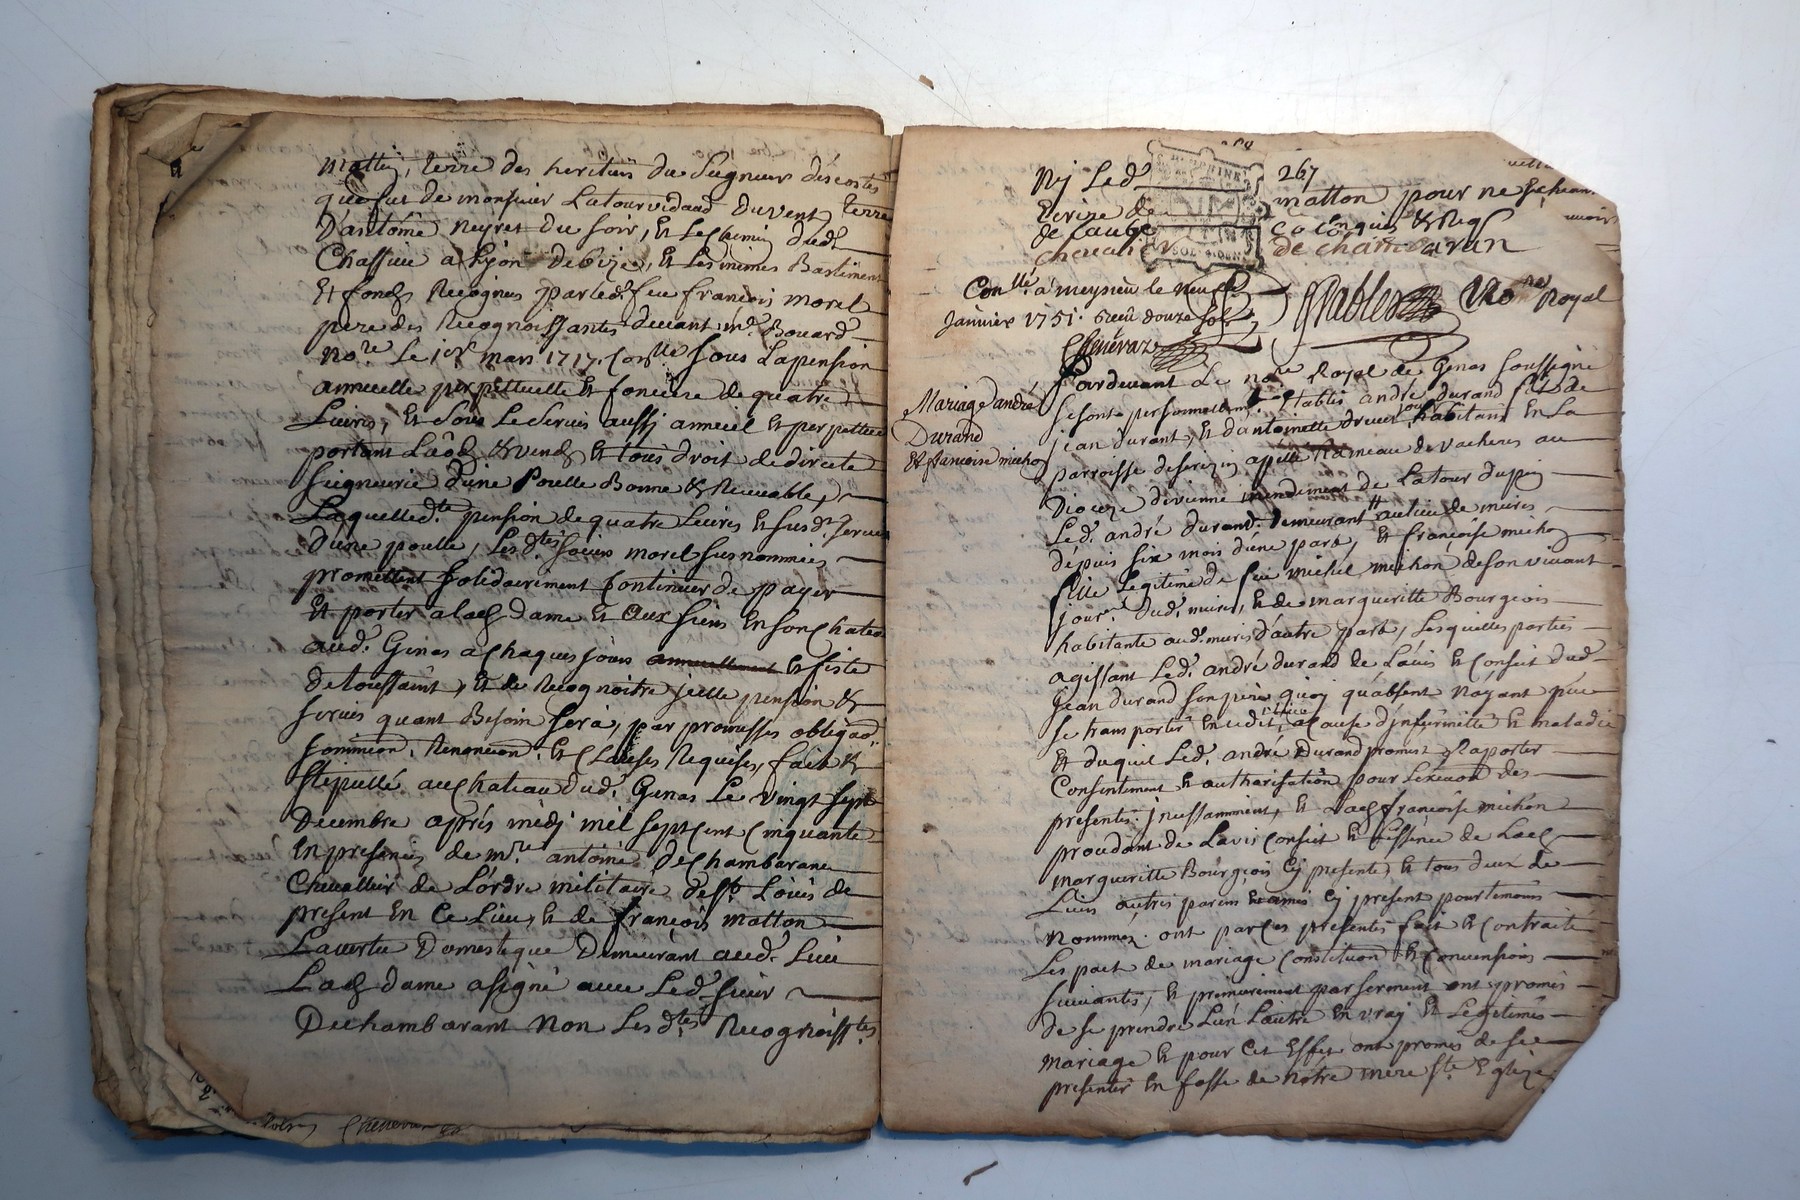 terre des heritiers du Seigneur descostes
que fut de monsieur Latourvidaud du vent, terre
D'antoine neyret du soir, et le chemin dud.
Chassieu a Lyon de bize, et les mêmes Bastiments
et fonds Recognus par led. feu françois morel
pere des Recognoissantes devant me. Bouard
nore. Le mars 1717. Conllé sous La pension
annuelle perpettuelle et fonciere de quatre
Livres, et sous le servis aussi annuel et perpettuel
portant Laods & vends et tous droit de directe
seigneurie d'une Poulle Bonne & Recevable,
Laquelle d.te pension de quatre Livres et susd. servis
d'une poulle, Les d.tes soeurs morel susnommées
promettent solidairement continuer de payer
et porter a lad. dame et aux siens en son chateau
aud. Genas a chaques jours annuellement et feste
de toussaint, et de Recognoitre jcelle pension &
servis quant Besoin sera, par promesses obligaon.
soumiʳon. Renonciaon. et clauses Requises, fait &
stipullé au chateau dud. Genas Le vingt sept
Decembre aprés midj mil sept cent cinquante
En presences de mre. antoine Dechambarane
Chevallier de L'ordre militaire de st. Louis de
present en ce Lieu, et de françois matton
Domestique Demeurant aud. Lieu
Lad. dame a signé avec Led. sieur
Dechambarant non les d.tes Recognoiss.tes
Chenevaz
267
Nj Led. matton pour ne
Ecrire de
de chambaran
Conllé. a meyzieu le neuf
Janvier 1751. Receu douze sols
Chenévaz
nore Royal
Mariage andré
Durand
et francoise michon
Pardevant Le nore Royal de Genas soussigné
se sont personnellemt. Etablis andré durand fils de
jean durant, et d'antoinette habitans En La
parroisse de hameau de vacheres au
Dioceze de vienne mendement de Latour dupin
Led. andré durand. demeurant au lieu de mures
depuis six mois d'une part, et françoise michon
fille Legitime de feu michel michon de son vivant
jour.er dud. mures, et de margueritte Bourgeois
habitante aud. mures d'autre part, Lesquelles parties
agissant Led. andré durand de L'avis et conseit dud.
Jean durand son pere quoy qu'absent n'ayant peu
se transporter en cedit a cause d'infirmitté et maladie
et duquel Led. andré Durand promet Raporter
Consentement et autharisation pour L'exeuon des
presentes jncessamment, et Lad. françoise michon
procedant de L'avis conseit et L'issence de Lad.
margueritte Bourgeois cy presente, et tous deux de
Leurs autres parens et amis cy present pour temoins
nommez. ont par ces presentes fait et contracté
Les pact de mariage Constituon et Conventions
suivantes, et premierement par serement ont promis
de se prendre L'un L'autre en vray et Legitimes
mariage et pour cet Effet ont promis de se
presenter en fasse de nôtre mere ste. Eglize